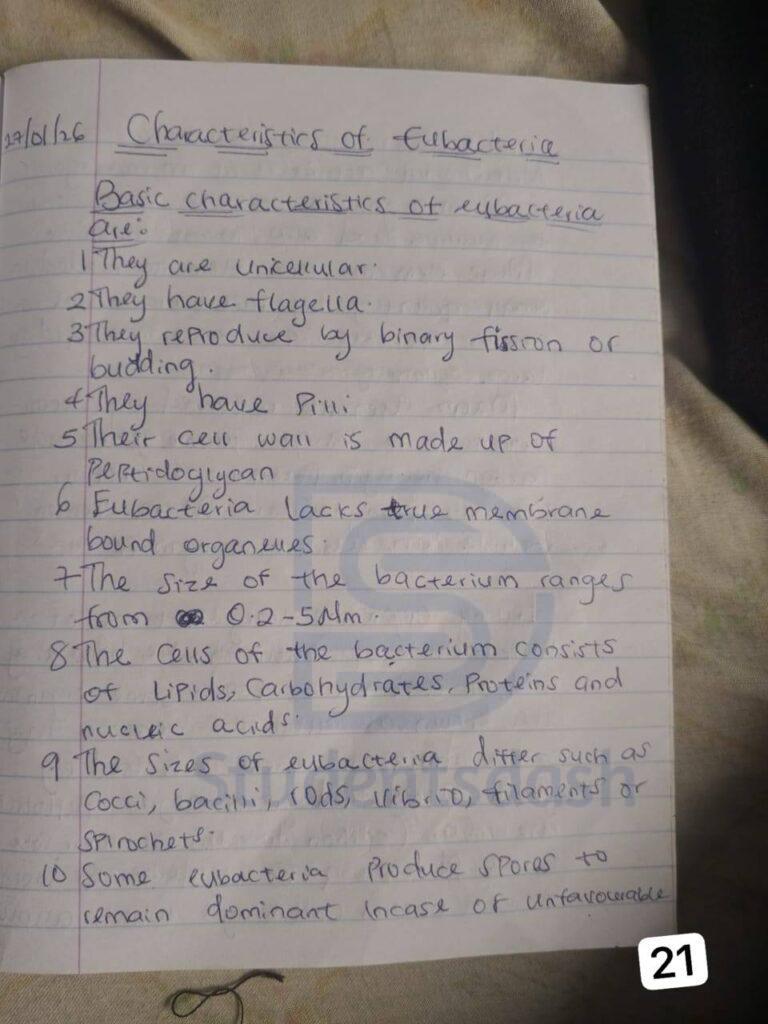 27/01/26 Characteristics of Eubacteria
Basic characteristics of eubacteria
are:
1 They are unicellular.
2 They have flagella.
3 They reproduce by binary fission or
budding.
4 They have Pilli
5 Their cell wall is made up of
Peptidoglycan
6 Eubacteria lacks true membrane
bound organelles.
7 The size of the bacterium ranges
from 0.2-5Nm.
8 The Cells of the bacterium consists
of Lipids, Carbohydrates, Proteins and
nucleic acids.
9 The sizes of eubacteria differ such as
Cocci, bacilli, rods, vibrio, filaments or
spirochets.
10 Some eubacteria Produce spores to
remain dominant incase of unfavourable
Studentsdash
21